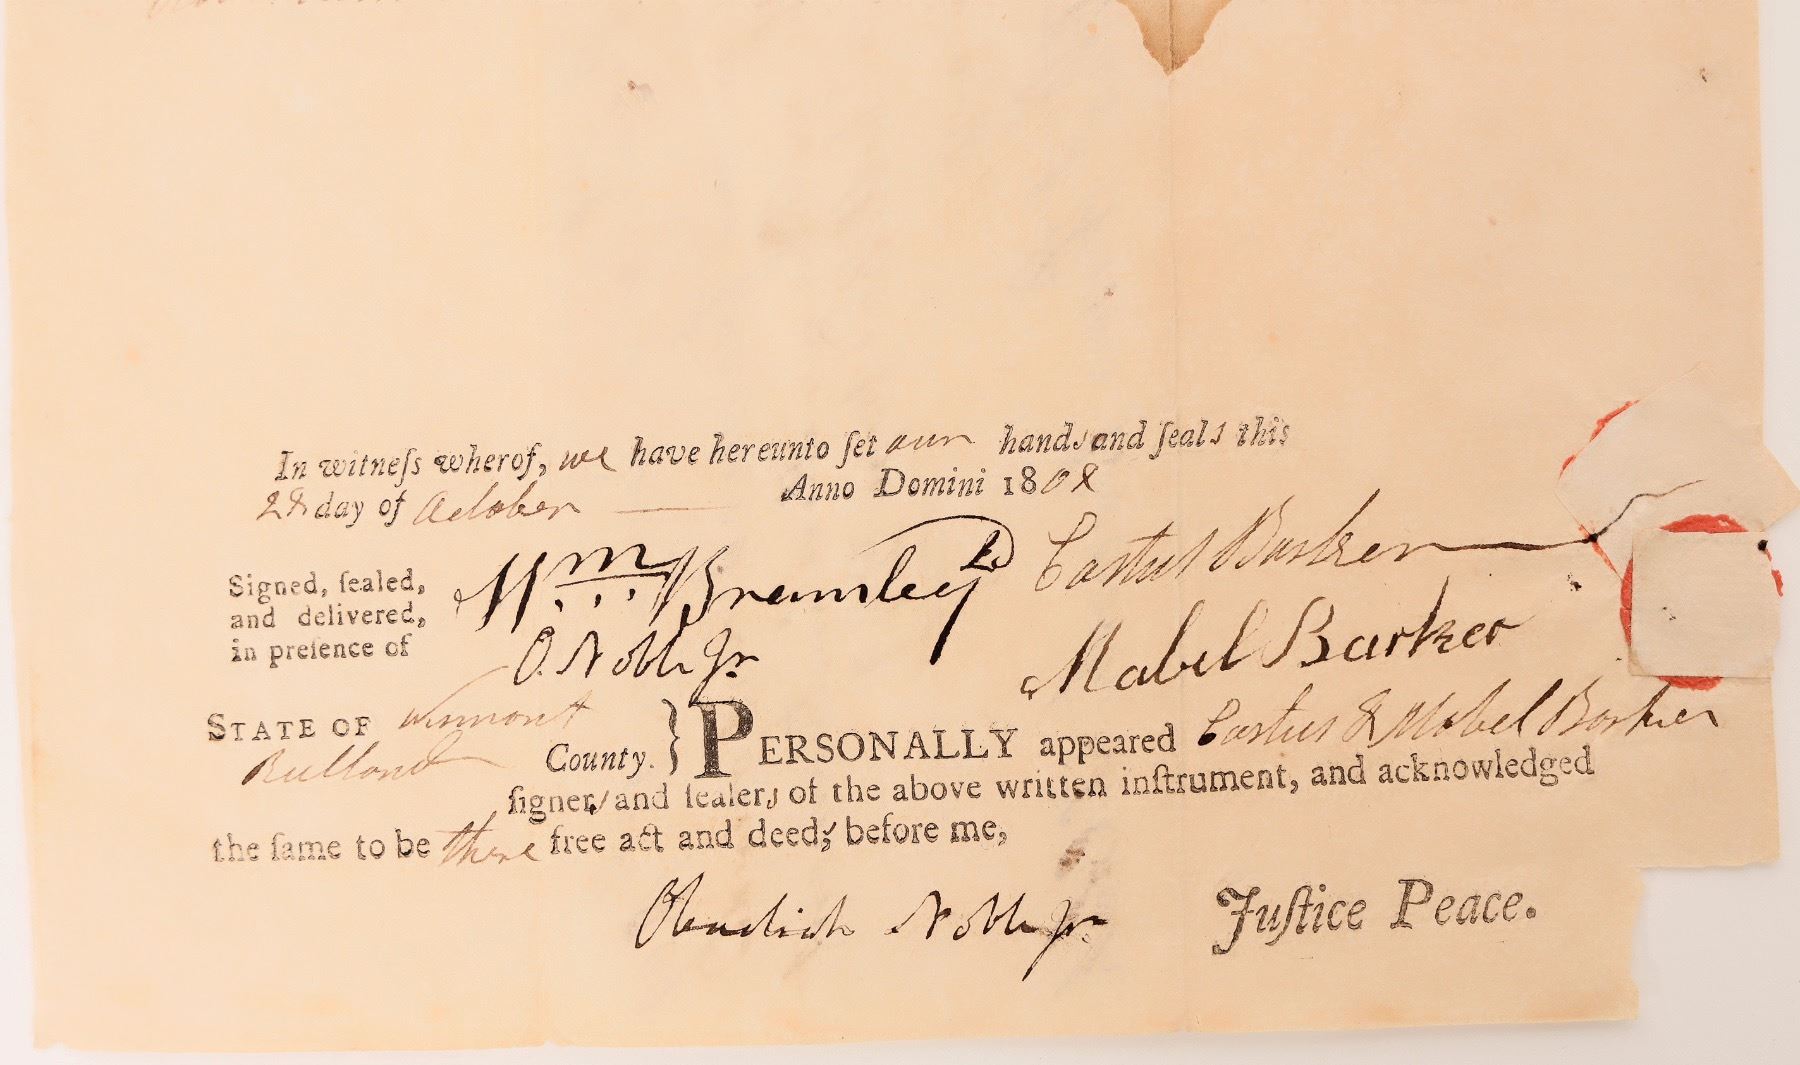 In witneſs wherof, we have hereunto ſet our hands and ſeals this
28 day of October Anno Domini 1808
Signed, ſealed,
and delivered,
in preſence of
Wm Bramley
O. Noble Jr.
Castus Barker
Mabel Barker
STATE OF Vermont
Rutland County. } PERSONALLY appeared Castus & Mabel Barker
ſigners and ſealers of the above written inſtrument, and acknowledged
the ſame to be there free act and deed; before me,
Obadiah Noble Jr. Juſtice Peace.